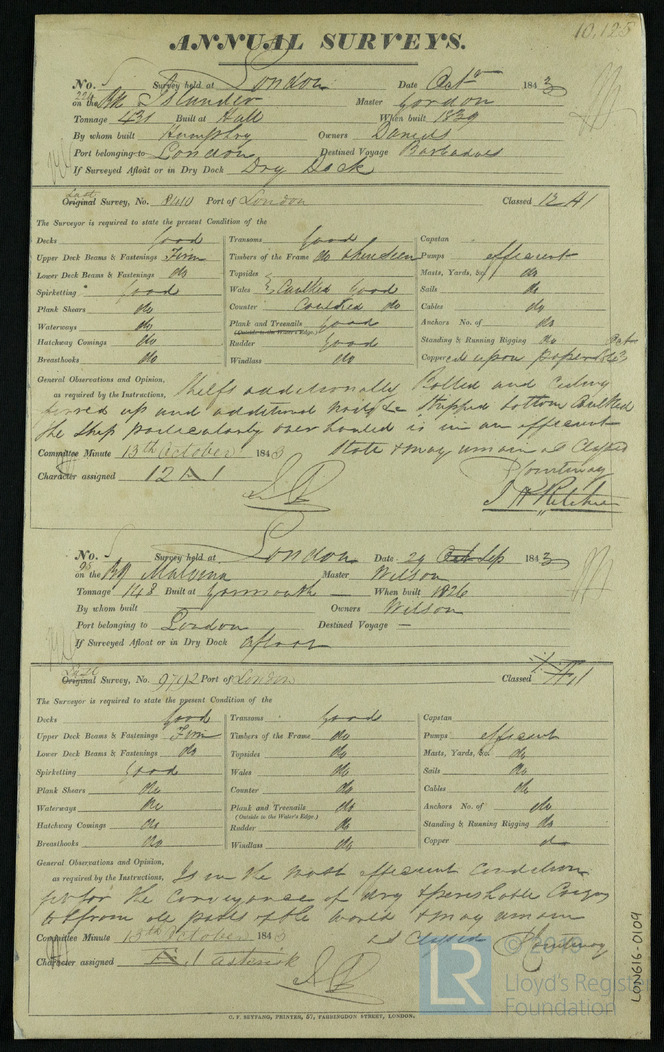 10,125
ANNUAL SURVEYS.
No. Survey held at London Date Oct 1843
on the Bk Islander Master Gordon
Tonnage 431 Built at Hull When built 1839
By whom built Humphry Owners Daniels
Port belonging to London Destined Voyage Barbadoes
If Surveyed Afloat or in Dry Dock Dry Dock
Last
Original Survey, No. Port of London Classed 12 A1
The Surveyor is required to state the present Condition of the
Decks Good
Upper Deck Beams & Fastenings Firm
Lower Deck Beams & Fastenings do
Spirketting Good
Plank Shears do
Waterways do
Hatchway Comings do
Breasthooks do
Transoms Good
Timbers of the Frame do where seen
Topsides
Wales Caulked Good
Counter Caulked do
Plank and Treenails Good
(Outside to the Water's Edge.)
Rudder Good
Windlass do
Capstan
Pumps efficient
Masts, Yards, &c. do
Sails do
Cables do
Anchors No. of do
Standing & Running Rigging do
Coppered upon
General Observations and Opinion,
as required by the Instructions, Shelfs additionally Bolted and
up and additional &c Stripped bottom Caulked
the Ship particularly overhauled is in an efficient
state & may remain as Classed
Committee Minute 13th October 1843
Courtenay
Character assigned 12 A 1
J H Ritchie
No. Survey held at London Date 29 Oct Sep 1843
95
on the Bg Malvina Master Wilson
Tonnage 148 Built at Yarmouth When built 1826
By whom built Owners Wilson
Port belonging to London Destined Voyage —
If Surveyed Afloat or in Dry Dock Afloat
Last
Original Survey, No. 9792 Port of London Classed Æ 1
The Surveyor is required to state the present Condition of the
Decks Good
Upper Deck Beams & Fastenings Firm
Lower Deck Beams & Fastenings do
Spirketting Good
Plank Shears do
Waterways do
Hatchway Comings do
Breasthooks do
Transoms Good
Timbers of the Frame do
Topsides do
Wales do
Counter do
Plank and Treenails do
(Outside to the Water's Edge.)
Rudder do
Windlass do
Capstan
Pumps efficient
Masts, Yards, &c. do
Sails do
Cables do
Anchors No. of do
Standing & Running Rigging do
Copper do
General Observations and Opinion,
as required by the Instructions, Is in the most efficient Condition
for the Conveyance of dry & perishable Cargo
to & from all parts of the World & may remain
as Classed Courtenay
Committee Minute 13th October 1843
Character assigned Æ 1 asterisk
C. F. SEYFANG, PRINTER, 57, FARRINGDON STREET, LONDON.
LON616-0109
LR
Lloyd's Register
Foundation